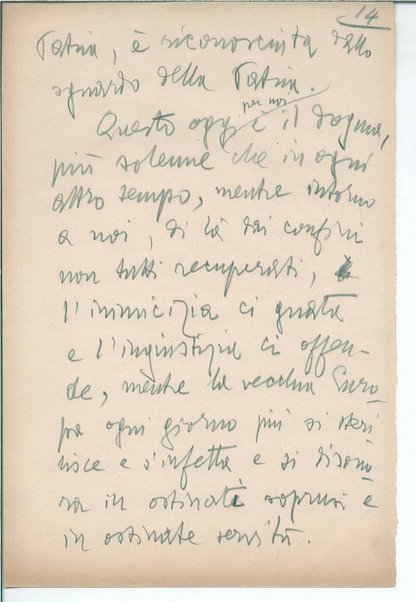 14
Patria, è riconosciuta dallo
sguardo della Patria.
per noi
Questo oggi è il dogma,
più solenne che in ogni
altro tempo, mentre intorno
a noi, di là dai confini
non tutti recuperati,
l'inimicizia ci guata
e l'ingiustizia ci offen-
de, mentre la vecchia Euro-
pa ogni giorno più si steri
lisce e s'infetta e si disono
ra in ostinati soprusi e
in ostinate servitù.